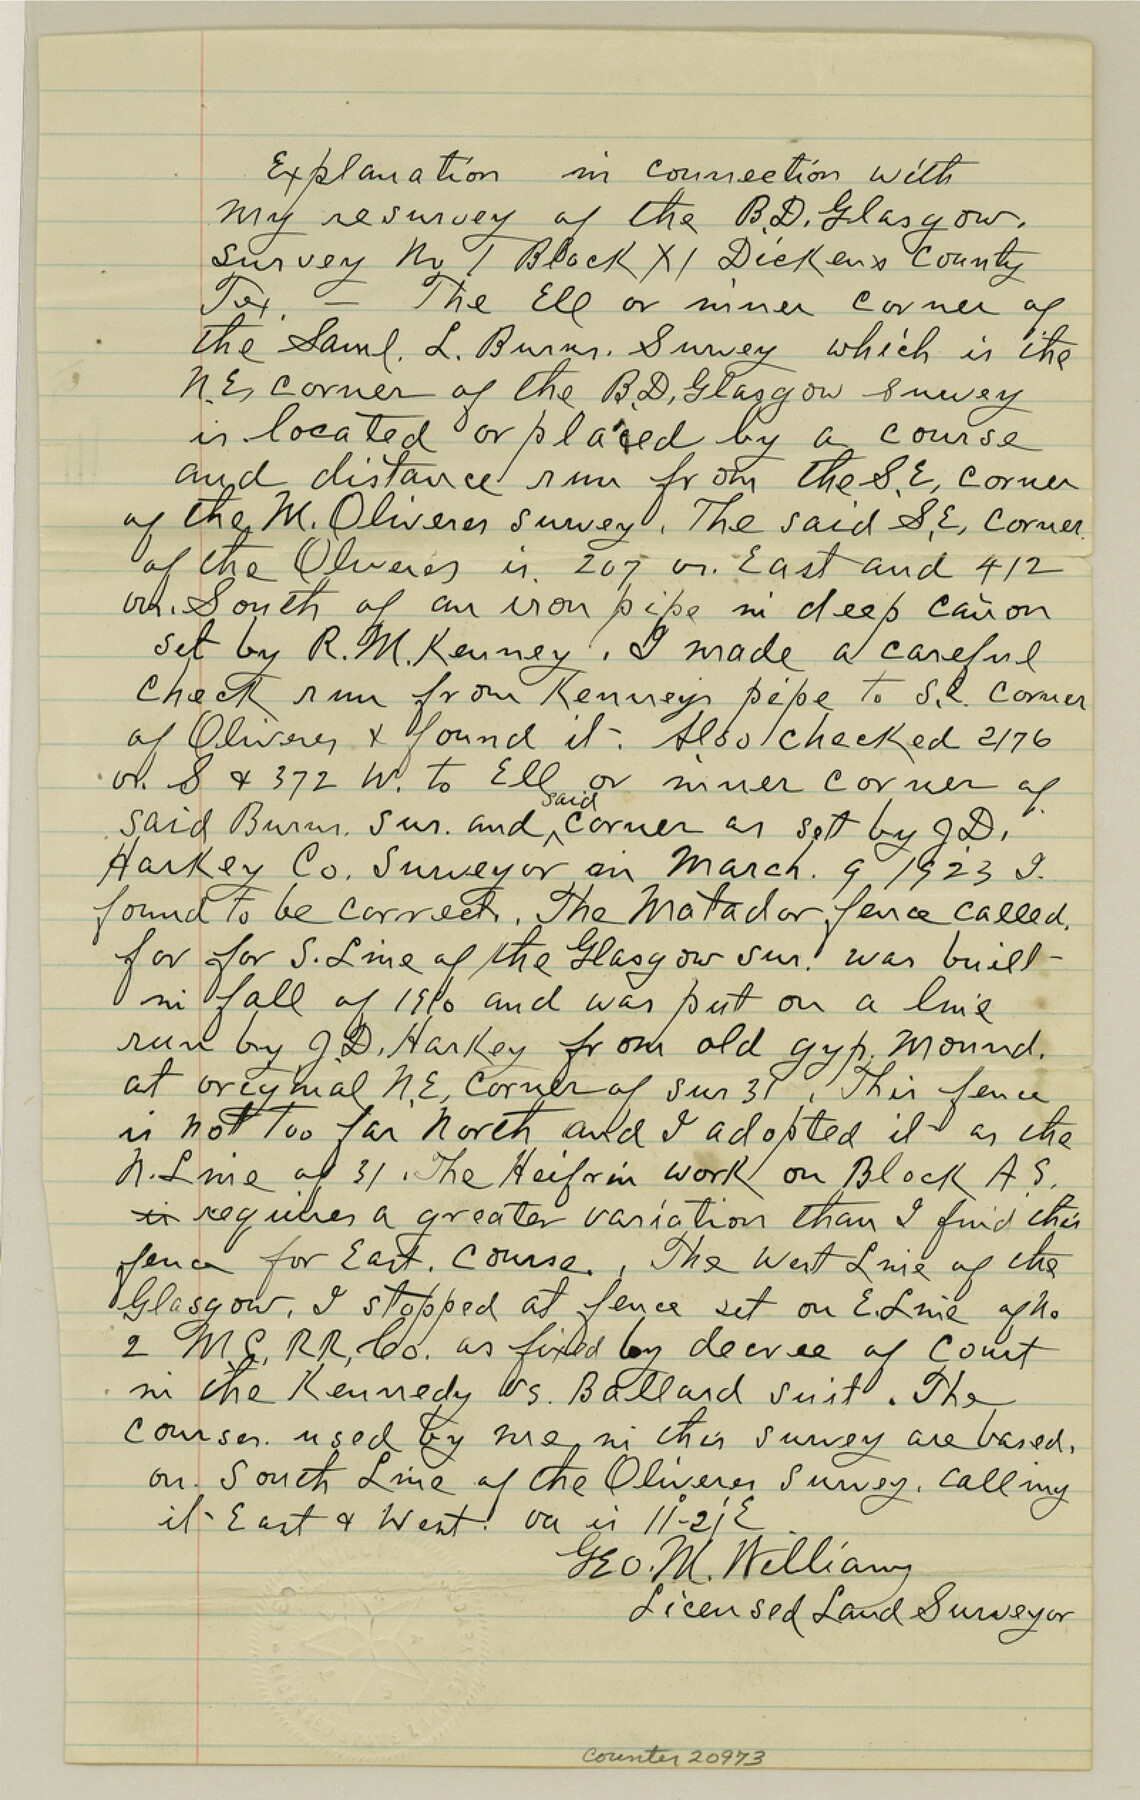 Explanation in connection with
my resurvey of the B.D. Glasgow.
Survey No 1 Block X1 Dickens County
Tex. — The Ell or inner corner of
the Saml. L. Burns. Survey which is the
N.E, corner of the B.D, Glasgow survey
is located or placed by a course
and distance run from the S.E, corner
of the M. Oliveres survey. The said S.E, corner.
of the Oliveres is. 207 vr. East and 412
vrs. South of an iron pipe in deep cañon
set by R.M. Kenney. I made a careful
check run from Kenneys pipe to S.E. corner
of Oliveres & found it. Also checked 2176
vr. S & 372 W. to Ell or inner corner of
said Burns. Sur. and said corner as set by J.D.
Harkey Co. Surveyor in March. 9 1923 I.
found to be correct. The Matador fence called.
for for S. Line of the Glasgow sur. was built
in fall of 1910 and was put on a line
run by J.D. Harkey from old gyp. mound.
at original N.E, corner of sur 31. This fence
is not too far North and I adopted it as the
N. Line of 31. The Heifrin work on Block A.S.
is requires a greater variation than I find this
fence for East. course. The West Line of the
Glasgow. I stopped at fence set on E. Line of No
2 M.C. RR, Co. as fixed by decree of Court
in the Kennedy vs. Ballard suit. The
courses. used by me in this survey are based.
on. South Line of the Oliveres Survey. calling
it East & West. va is 11°-21'E
Geo. M. Williams
Licensed Land Surveyor
counter 20973